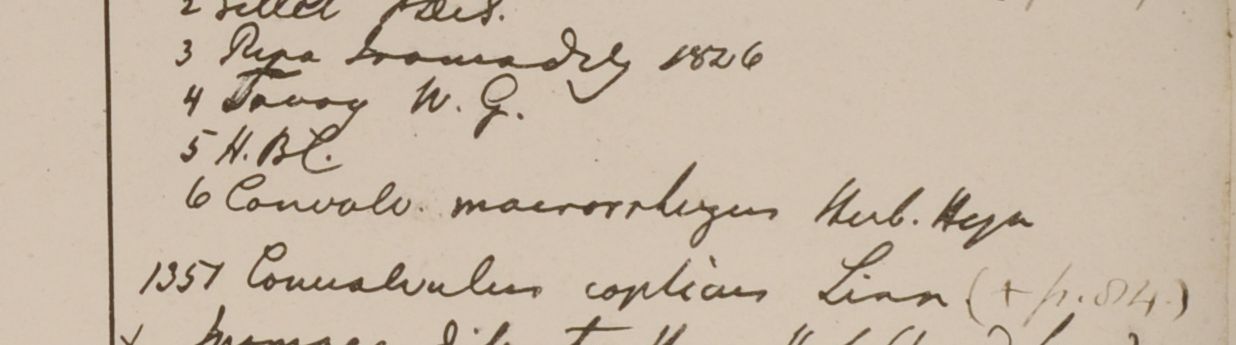 3 Ripa Irawaddy 1826
4 Tavoy W. G.
5 H.B.C.
6 Convolv. macrorrhizus Herb. Heyn
1351 Convolvulus copticus Linn (+ p. 84.)